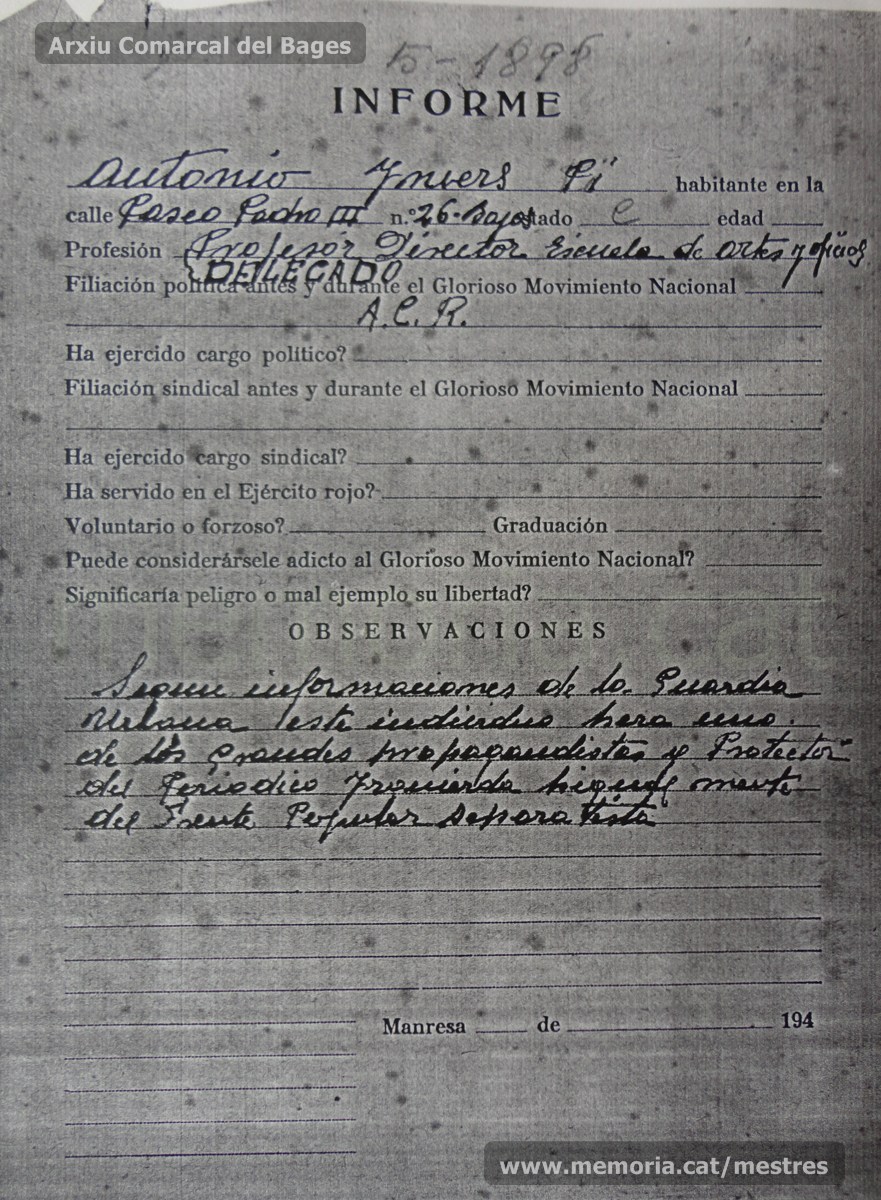 Arxiu Comarcal del Bages
15-1898
INFORME
Antonio Ynvers Pi habitante en la
calle Paseo Pedro III n.º 26-Bajos estado C edad
Profesión Profesor Director Escuela de artes y oficios
DELEGADO
Filiación política antes y durante el Glorioso Movimiento Nacional
A.C.R.
Ha ejercido cargo político?
Filiación sindical antes y durante el Glorioso Movimiento Nacional
Ha ejercido cargo sindical?
Ha servido en el Ejército rojo?
Voluntario o forzoso? Graduación
Puede considerársele adicto al Glorioso Movimiento Nacional?
Significaría peligro o mal ejemplo su libertad?
OBSERVACIONES
Segun informaciones de la Guardia
Urbana este individuo hera uno
de los Grandes propagandistas y Protector
del Periodico Yzquierda higual mente
del Frente Popular separatista
Manresa de 194
www.memoria.cat/mestres